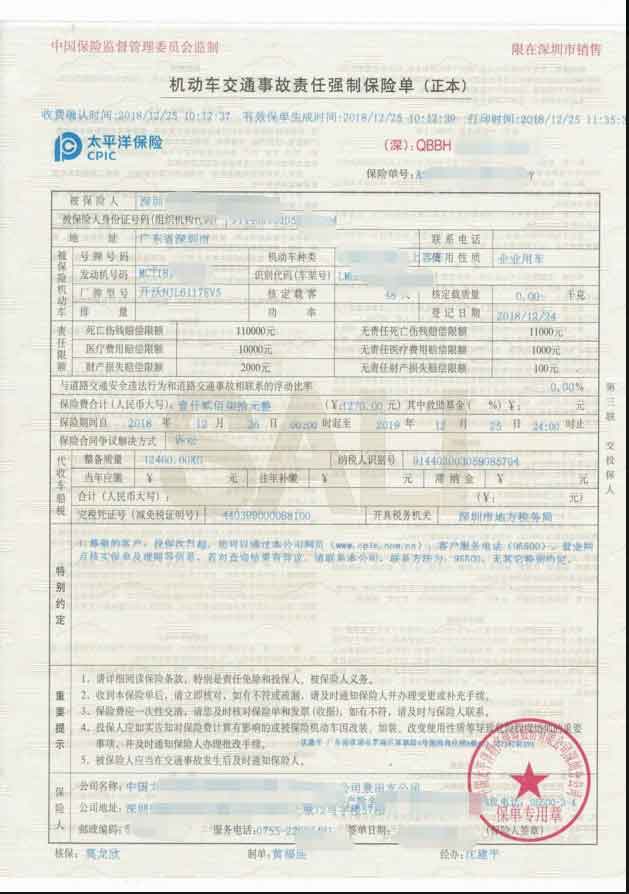 中国保险监督管理委员会监制 限在深圳市销售
机动车交通事故责任强制保险单 (正本)
收费确认时间:2018/12/25 10:12:37 有效保单生成时间:2018/12/25 10:12:39 打印时间:2018/12/25 11:35:3
太平洋保险
CPIC
(深):QBBH
保险单号:A
被保险人 深圳
被保险人身份证号码(组织机构代码)
地 址 广东省深圳市 联系电话
被保险机动车
号牌号码 机动车种类 使用性质 企业用车
发动机号码 识别代码(车架号)
厂牌型号 开沃NJL6117EV5 核定载客 48 人 核定载质量 0.00 千克
排 量 功 率 登记日期 2018/12/24
责任限额
死亡伤残赔偿限额 110000元 无责任死亡伤残赔偿限额 11000元
医疗费用赔偿限额 10000元 无责任医疗费用赔偿限额 1000元
财产损失赔偿限额 2000元 无责任财产损失赔偿限额 100元
与道路交通安全违法行为和道路交通事故相联系的浮动比率 0.00%
保险费合计(人民币大写):壹仟贰佰柒拾元整 (¥:1270.00 元) 其中救助基金( %)¥: 元
保险期间自 2018 年 12 月 26 日 00:00 时起至 2019 年 12 月 25 日 24:00 时止
保险合同争议解决方式 诉讼
代收车船税
整备质量 12400.00KG 纳税人识别号
当年应缴 ¥ 元 往年补缴 ¥ 元 滞纳金 ¥ 元
合计(人民币大写): (¥: 元)
完税凭证号(减免税证明号) 440399000088100 开具税务机关 深圳市地方税务局
第三联 交投保人
特别约定
1.尊敬的客户:投保次日起,您可以通过本公司网页(www.cpic.com.cn)、客户服务电话(95500)、营业网
点核实保单及理赔等信息。若对查询结果有异议,请联系本公司。联系方法为:95500。无其它特别约定。
重要提示
1. 请详细阅读保险条款,特别是责任免除和投保人、被保险人义务。
2. 收到本保险单后,请立即核对,如有不符或疏漏,请及时通知保险人并办理变更或补充手续。
3. 保险费应一次性交清,请您及时核对保险单和发票(收据),如有不符,请及时与保险人联系。
4. 投保人应如实告知对保险费计算有影响的或被保险机动车因改装、加装、改变使用性质等导致危险程度增加的重要
事项,并及时通知保险人办理批改手续。
5. 被保险人应当在交通事故发生后及时通知保险人。
保险人
公司名称:中国 公司景田支公司
公司地址:深圳
邮政编码: 服务电话:0755-22 签单日期: (保险人签章)
保单专用章
核保: 莫龙欣 制单: 经办: 沈建平